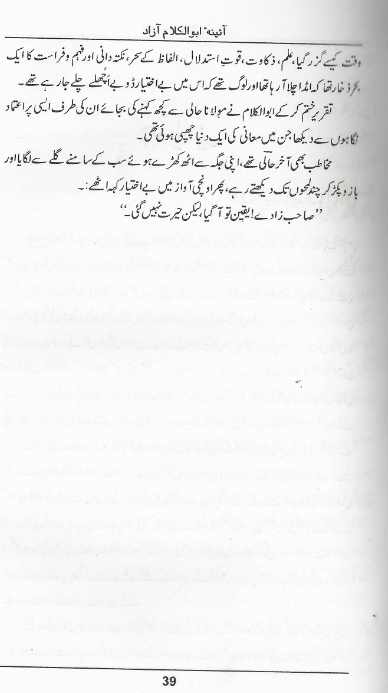 آئینۂ ابوالکلام آزاد
وقت کیسے گزر گیا، علم، ذکاوت، قوتِ استدلال، الفاظ کے سحر، نکتہ دانی اور فہم و فراست کا ایک
بحرِ ذخار تھا کہ امڈا چلا آ رہا تھا اور لوگ تھے کہ اس میں بے اختیار ڈوبے اُچھلے چلے جا رہے تھے۔
تقریر ختم کر کے ابوالکلام نے مولانا حالی سے کچھ کہنے کی بجائے ان کی طرف ایسی پر اعتماد
نگاہوں سے دیکھا جن میں معانی کی ایک دنیا چھپی ہوئی تھی۔
مخاطب بھی آخر حالی تھے، اپنی جگہ سے اٹھ کھڑے ہوئے سب کے سامنے گلے سے لگایا اور
بازو پکڑ کر چند لمحوں تک دیکھتے رہے، پھر اونچی آواز میں بے اختیار کہہ اٹھے:۔
”صاحب زادے! یقین تو آ گیا، لیکن حیرت نہیں گئی۔“
39